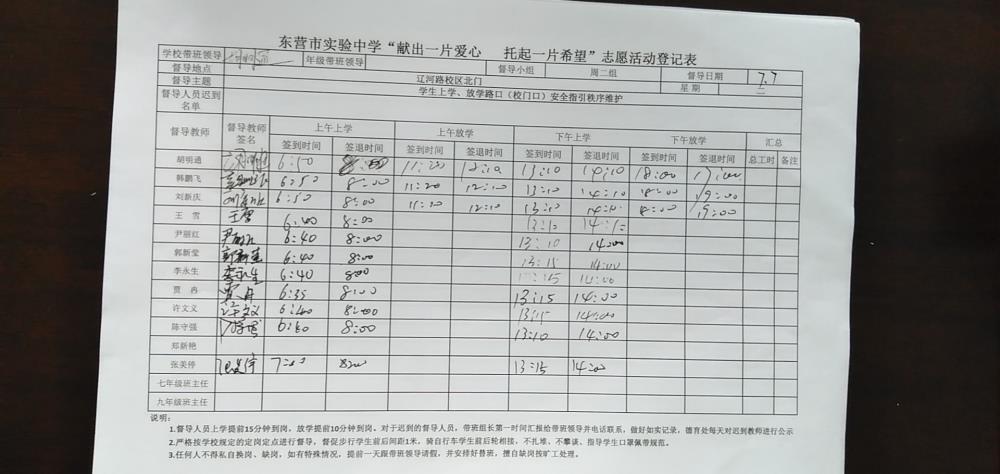 东营市实验中学“献出一片爱心 托起一片希望”志愿活动登记表
学校带班领导 年级带班领导 督导小组 周二组 督导日期 7.7
督导地点 辽河路校区北门 星期 二
督导主题 学生上学、放学路口（校门口）安全指引秩序维护
督导人员迟到名单
督导教师 督导教师签名 上午上学 上午放学 下午上学 下午放学 汇总
签到时间 签退时间 签到时间 签退时间 签到时间 签退时间 签到时间 签退时间 总工时 备注
胡明通 11:20 12:10 13:10 14:10 18:00
韩鹏飞 6:50 8:00 11:20 12:10 13:10 14:10 18:00 19:00
刘新庆 6:50 8:00 11:20 12:10 13:10 18:00 19:00
王雪 王雪 6:40 8:00 13:10
尹丽红 6:40 8:00 13:10 14:00
郭新堂 6:40 8:00 13:15 14:00
李永生 李永生 6:40 8:00 14:00
贾冉 贾冉 6:35 8:00 13:15 14:00
许文义 许文义 6:40 8:00 13:15 14:00
陈守强 8:00 13:10 14:00
郑新艳
张美停 7:00 8:00 13:15 14:00
七年级班主任
九年级班主任
说明：
1.督导人员上学提前15分钟到岗，放学提前10分钟到岗。对于迟到的督导人员，带班组长第一时间汇报给带班领导并电话联系，做好如实记录，德育处每天对迟到教师进行公示
2.严格按学校规定的定岗定点进行督导，督促步行学生前后间距1米，骑自行车学生前后轮相接，不扎堆、不攀谈、指导学生口罩佩带规范。
3.任何人不得私自换岗、缺岗，如有特殊情况，提前一天跟带班领导请假，并安排好替班，擅自缺岗按旷工处理。